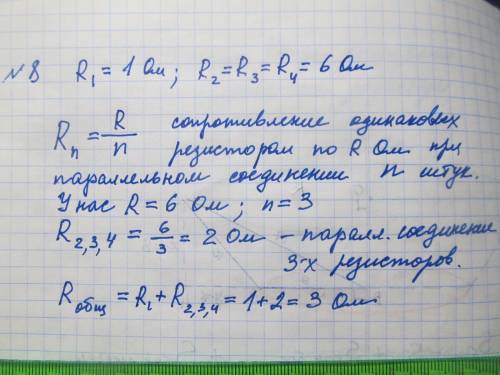 №8 R₁ = 1 Ом; R₂ = R₃ = R₄ = 6 Ом
Rₙ = R/n сопротивление одинаковых
резистором по R Ом при
параллельном соединении n штук.
У нас R = 6 Ом; n = 3
R₂,₃,₄ = 6/3 = 2 Ом – паралл. соединение
3-х резисторов.
Rобщ = R₁ + R₂,₃,₄ = 1 + 2 = 3 Ом